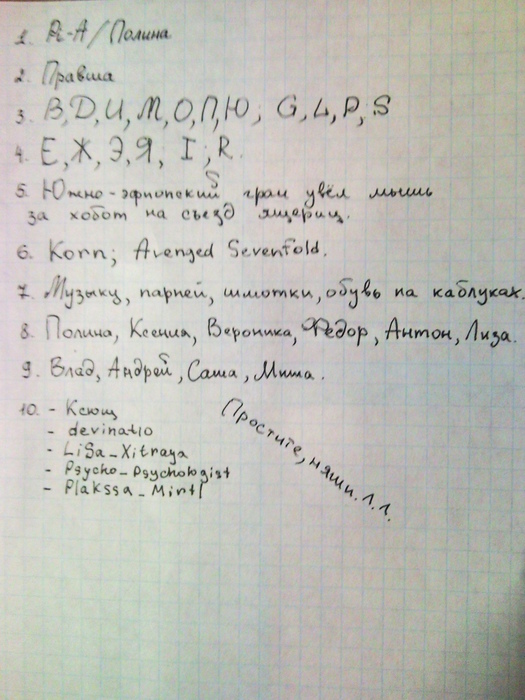 1. Pi-A/Полина
2. Правша
3. В, Д, И, М, О, П, Ю; G, L, P, S
4. Е, Ж, Э, Я; I; R.
5. Южно-эфиопский грач увёл мышь
за хобот на съезд ящериц.
6. Korn; Avenged Sevenfold.
7. Музыку, парней, шмотки, обувь на каблуках.
8. Полина, Ксения, Вероника, Фёдор, Антон, Лиза.
9. Влад, Андрей, Саша, Миша.
10. - Ксющ
- devinatio
- LiSa_Xitraya
- Psycho_Psychologist
- Plakssa_Mirtl
Простите, няши. Л.Л.